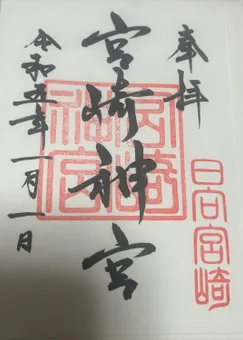 奉拝
日向宮崎
宮崎神宮
宮崎
神宮
令和五年一月一日